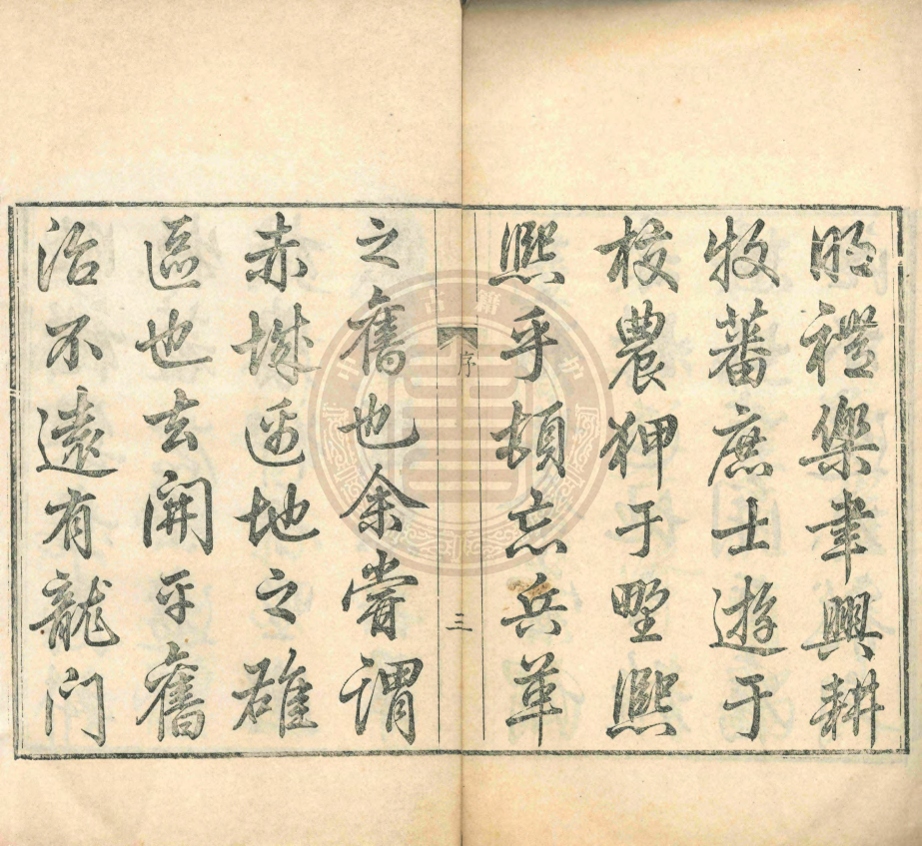 明禮樂聿興耕
牧蕃庶士遊于
校農狎于野熙
熙乎頓忘兵革
序
三
之舊也余嘗謂
赤城邊地之雄
區也去開平舊
治不遠有龍门